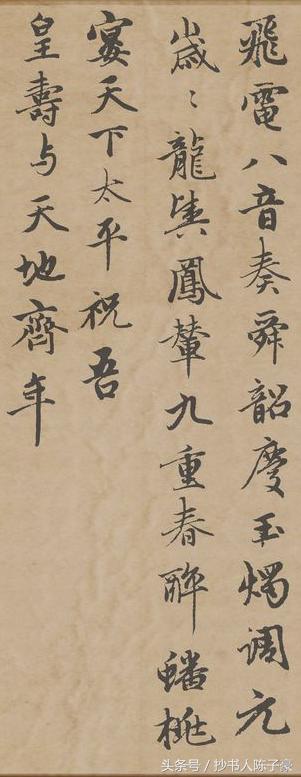 飛電八音奏舜韶慶玉燭調元
歲〻龍輿鳳輦九重春醉蟠桃
宴天下太平祝吾
皇壽与天地齊年
头条号 / 抄书人陈子豪